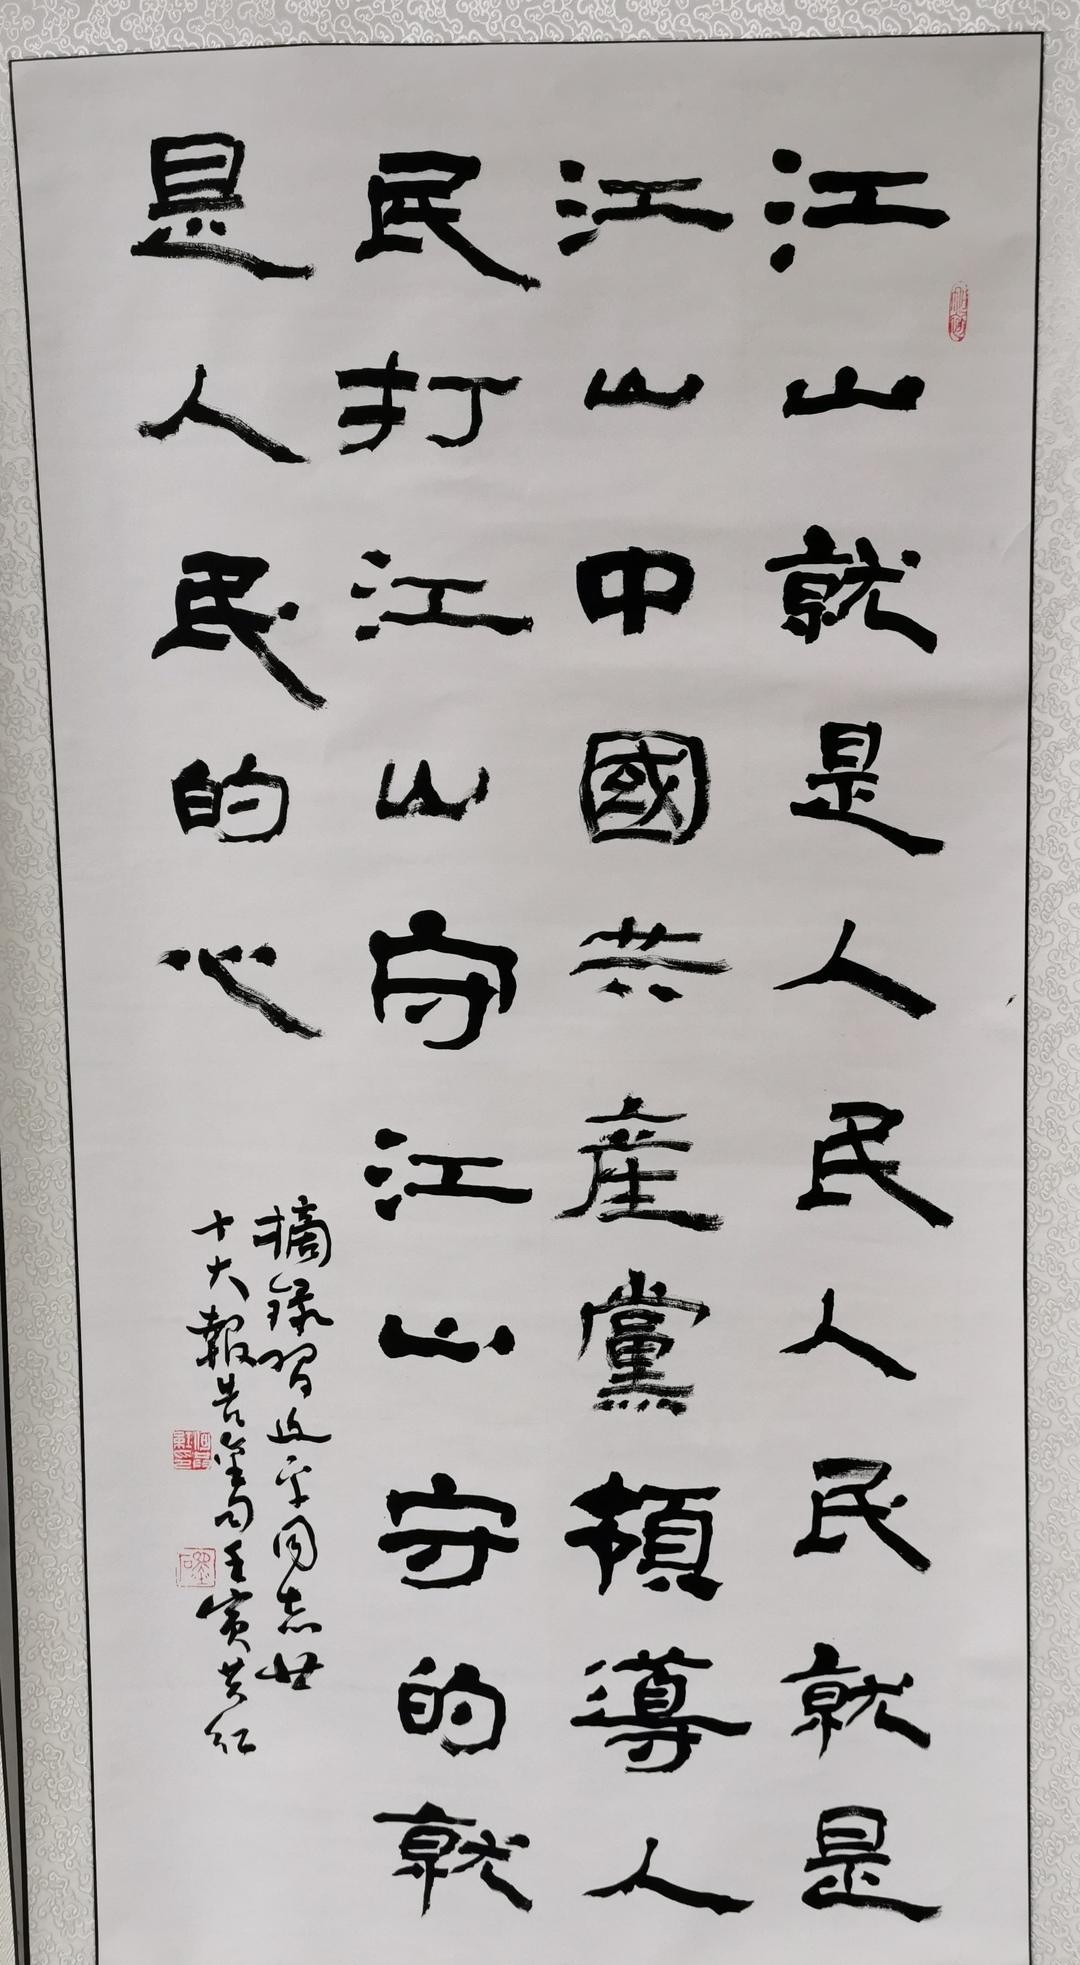 江山就是人民人民就是
江山中國共産黨領導人
民打江山守江山守的就
是人民的心
摘錄習近平同志廿
十大報告金句壬寅